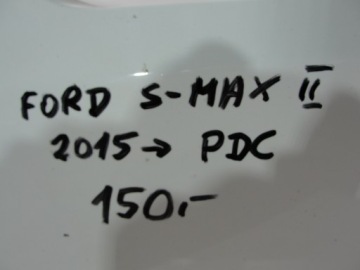 FORD S-MAX II
2015→ PDC
150,-